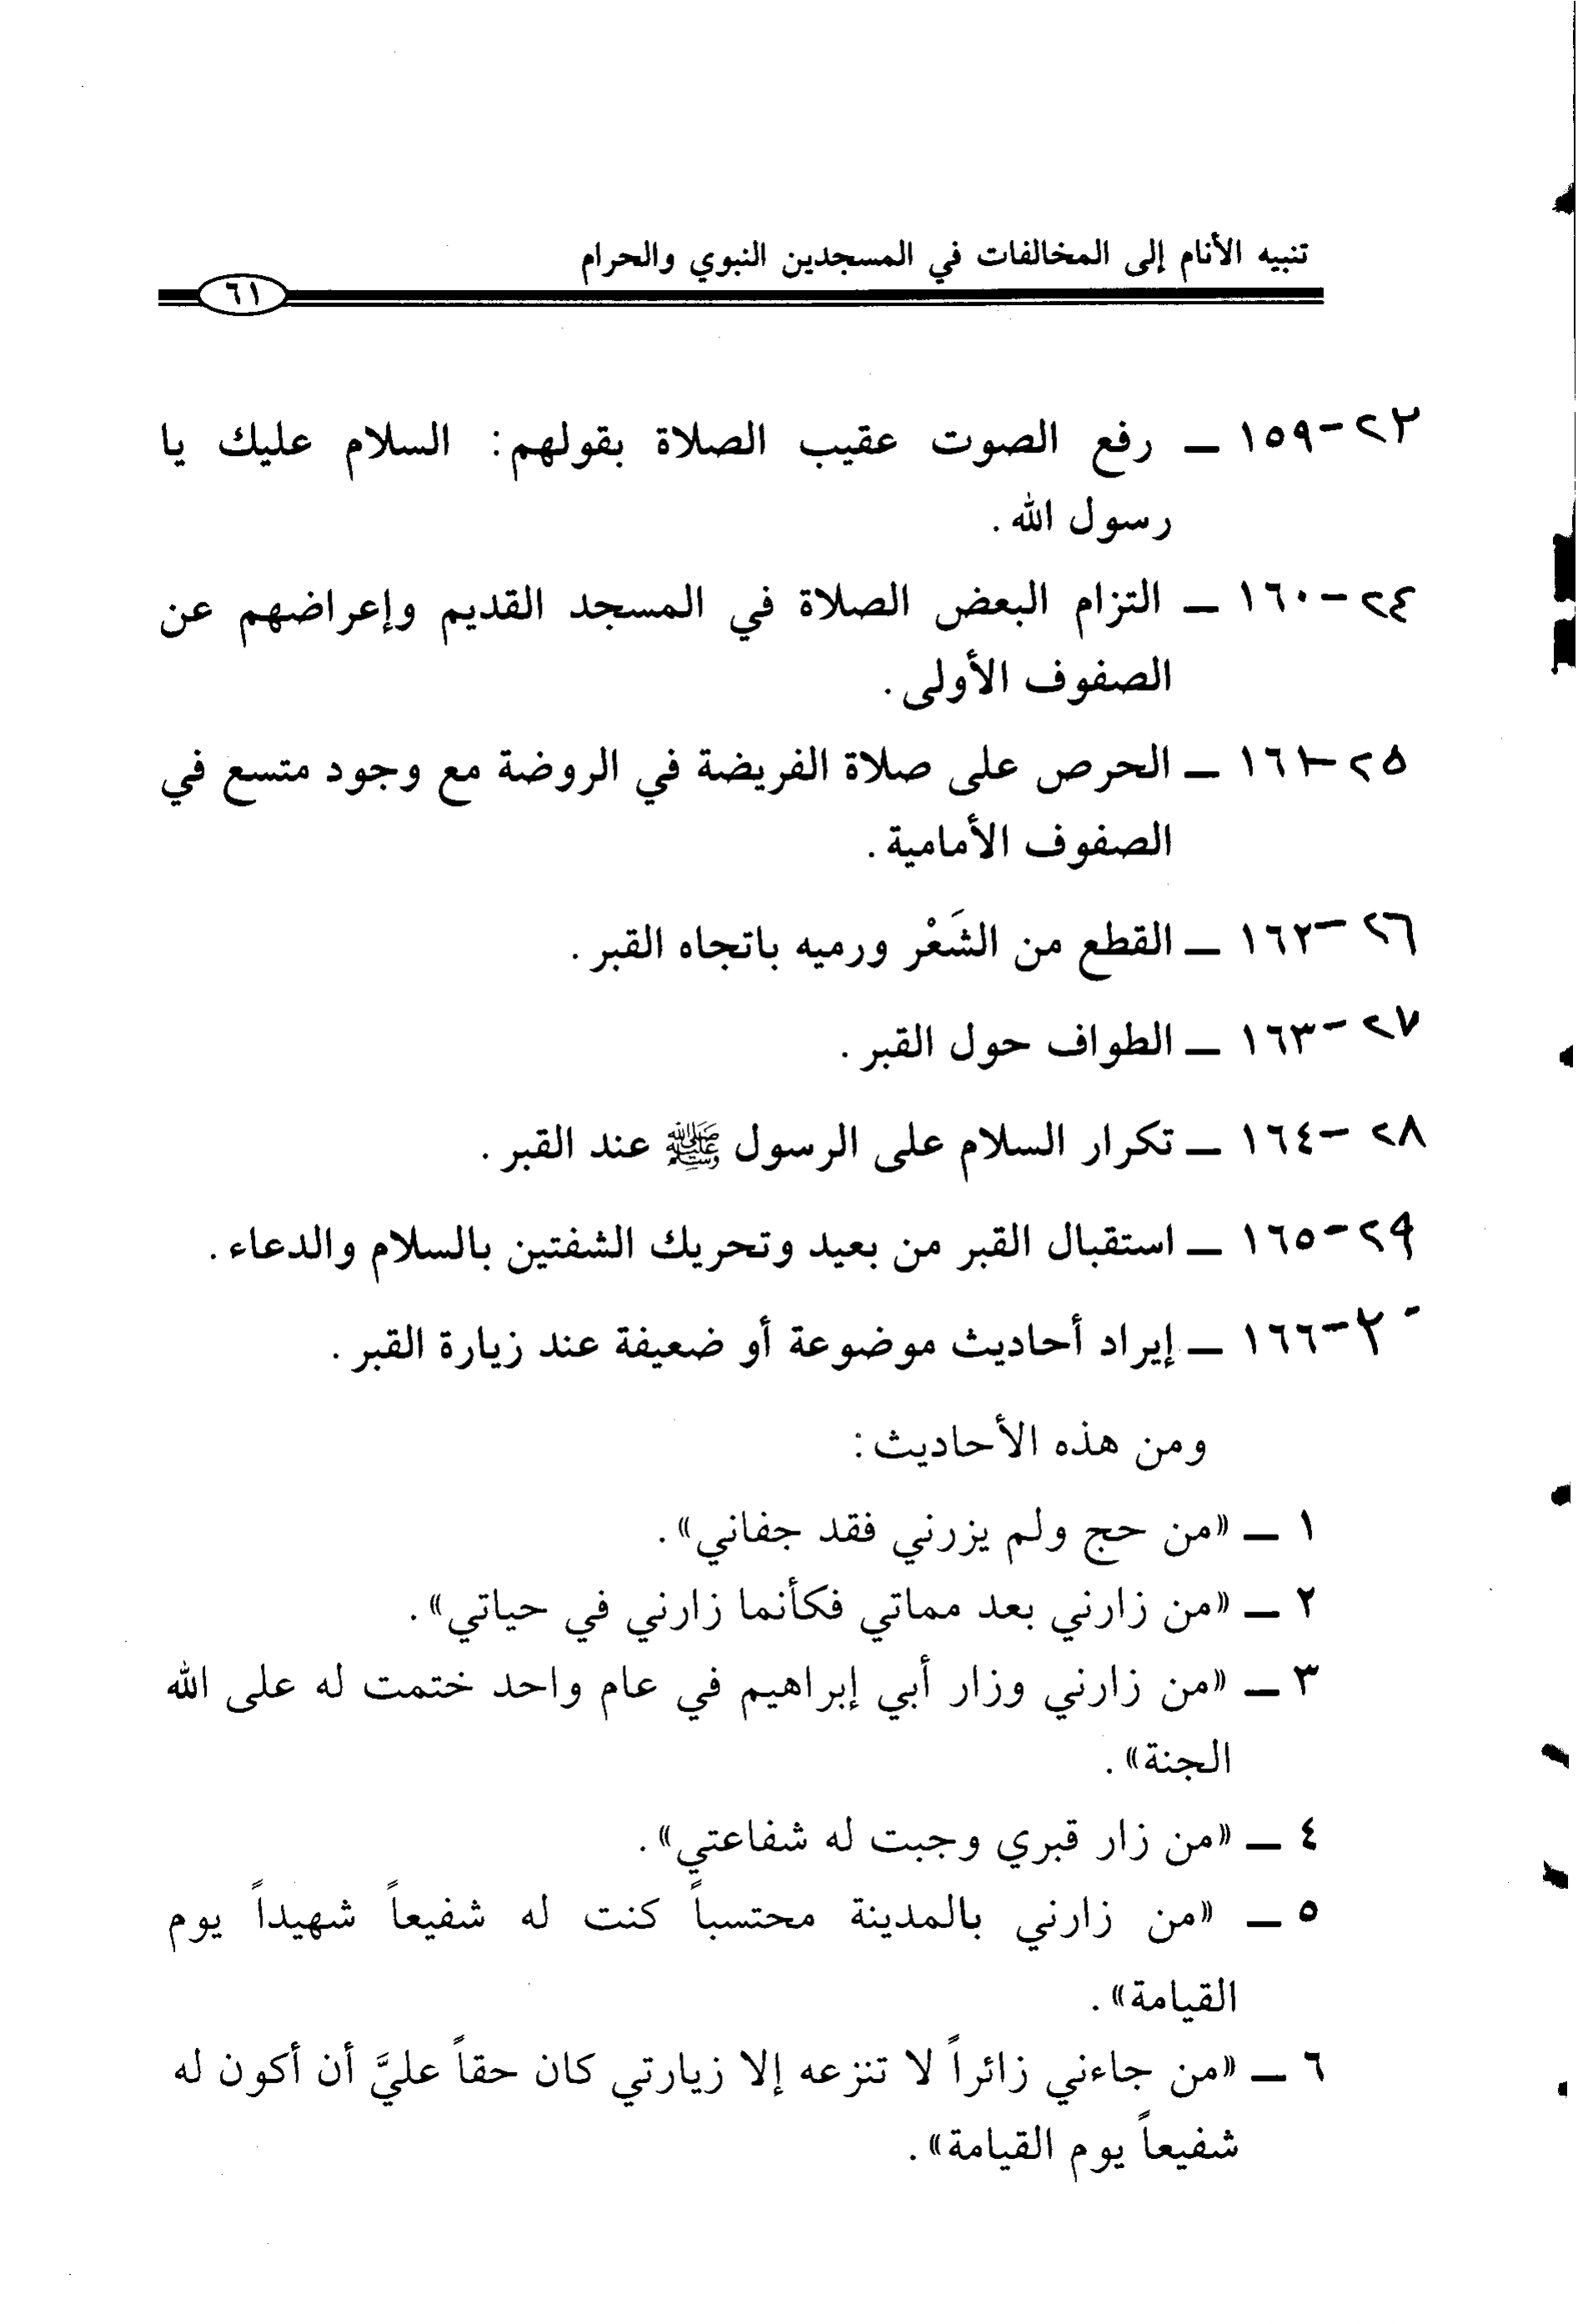 تنبيه الأنام إلى المخالفات في المسجدين النبوي والحرام
٦١
٢٣-١٥٩ ـ رفع الصوت عقيب الصلاة بقولهم: السلام عليك يا
رسول الله.
٢٤-١٦٠ ـ التزام البعض الصلاة في المسجد القديم وإعراضهم عن
الصفوف الأولى.
٢٥-١٦١ ـ الحرص على صلاة الفريضة في الروضة مع وجود متسع في
الصفوف الأمامية.
٢٦-١٦٢ ـ القطع من الشَعْر ورميه باتجاه القبر.
٢٧-١٦٣ ـ الطواف حول القبر.
٢٨-١٦٤ ـ تكرار السلام على الرسول ﷺ عند القبر.
٢٩-١٦٥ ـ استقبال القبر من بعيد وتحريك الشفتين بالسلام والدعاء.
٣٠-١٦٦ ـ إيراد أحاديث موضوعة أو ضعيفة عند زيارة القبر.
ومن هذه الأحاديث:
١ ـ «من حج ولم يزرني فقد جفاني».
٢ ـ «من زارني بعد مماتي فكأنما زارني في حياتي».
٣ ـ «من زارني وزار أبي إبراهيم في عام واحد ختمت له على الله
الجنة».
٤ ـ «من زار قبري وجبت له شفاعتي».
٥ ـ «من زارني بالمدينة محتسباً كنت له شفيعاً شهيداً يوم
القيامة».
٦ ـ «من جاءني زائراً لا تنزعه إلا زيارتي كان حقاً عليَّ أن أكون له
شفيعاً يوم القيامة».